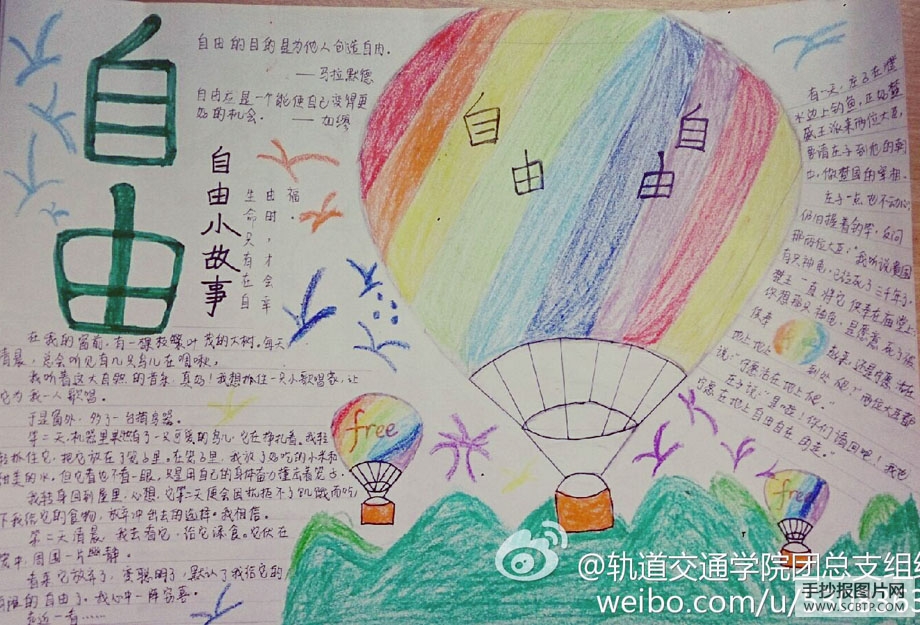 自由
自由的目的是为他人创造自由.
——马拉默德
自由应是一个能使自己变得更
好的机会. ——加缪
自由小故事
生命只有在自
由时,才会幸
福.
在我的窗前,有一棵枝繁叶茂的大树.每天
清晨,总会听见有几只鸟儿在唱歌.
我听着这大自然的音乐,真好!我想抓住一只小歌唱家,让
它为我一人歌唱.
于是窗外,多了一台捕鸟器.
第二天,机器里果然有了一只可爱的鸟儿,它在挣扎着.我轻
轻抓住它,把它放在了笼子里.在笼子里,我放了好吃的小米和
甜美的水,但它看也不看一眼,只是用自己的身体奋力撞击着笼子.
我转身回到屋里,心想,它第二天便会因抵抗不了饥饿而吃
下我给它的食物,放弃冲出去的选择.我相信.
第二天清晨,我去看它,给它添食.它伏在
笼中,周围一片幽静.
看来它放弃了,变聪明了,默认了我给它的
有限的自由了.我心中一阵窃喜.
走近一看……
自由
自由
有一天,庄子在濮
水边上钓鱼,正好楚
威王派来两位大臣,
要请庄子到他的朝
中,做楚国的宰相.
庄子一点也不动心,
仍旧提着钓竿,反问
那两位大臣:"我听说楚国
有只神龟,已经死了三千年了,
楚王一直将它供奉在庙堂
你想想这只神龟,是愿意死了被
供奉 起来,还是宁愿活在
地上地上 到处爬?"两位大臣都
说:"宁愿活在地上爬."
庄子说:"是啦!你们请回吧!我也
宁愿在地上自由自在的走."
free
free
@轨道交通学院团总支组织
weibo.com/u/
手抄报图片网
WWW.SCBTP.COM